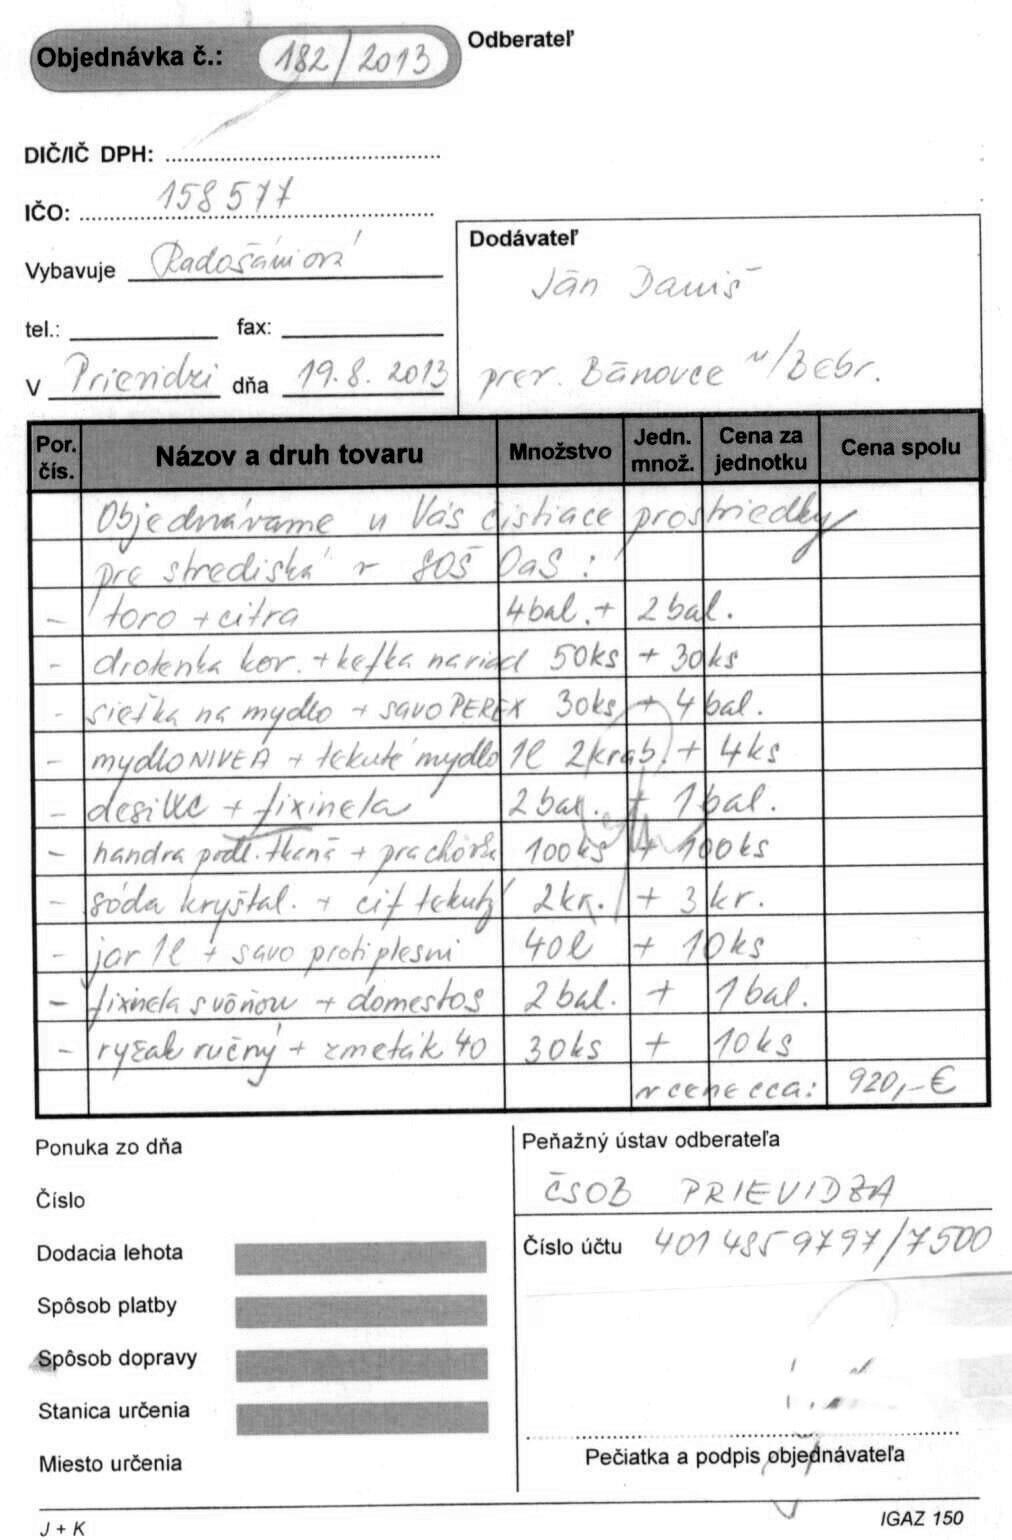 Objednávka č.: 182/2013
Odberateľ
DIČ/IČ DPH:
IČO: 158 577
Vybavuje Radošániová
tel.: fax:
V Prievidzi dňa 19.8.2013
Dodávateľ
Ján Daniš
prev. Bánovce n/Bebr.
Por. čís. Názov a druh tovaru Množstvo Jedn. množ. Cena za jednotku Cena spolu
Objednávame u Vás čistiace prostriedky
pre strediská v SOŠ OaS :
- toro + citra 4 bal. + 2 bal.
- drotenka kov. + kefka na riad 50ks + 30ks
- sieťka na mydlo + savo PEREX 30ks + 4 bal.
- mydlo NIVEA + tekuté mydlo 1l 2 krab. + 4ks
- desiWC + fixinela 2 bal. + 1 bal.
- handra podl. tkaná + prachovka 100ks + 100ks
- sóda kryštal. + cif tekutý 2kr. + 3 kr.
- jar 1l + savo proti plesni 40l + 10ks
- fixinela s vôňou + domestos 2 bal. + 1 bal.
- ryžak ručný + zmeták 40 30ks + 10ks
v cene cca: 920,-€
Ponuka zo dňa
Číslo
Dodacia lehota
Spôsob platby
Spôsob dopravy
Stanica určenia
Miesto určenia
Peňažný ústav odberateľa
ČSOB PRIEVIDZA
Číslo účtu 401 485 9797/7500
Pečiatka a podpis objednávateľa
J + K
IGAZ 150